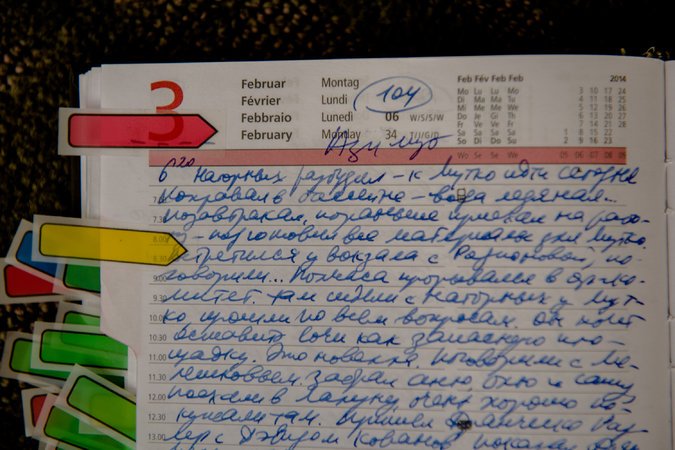 3
Februar Montag
Février Lundi
Febbraio Lunedì 06 W/S/W/S
February Monday 34 T/J/G/D
104
Feb Fév Feb Feb 2014
Mo Lu Lu Mo 3 10 17 24
Di Ma Ma Tu 4 11 18 25
Mi Me Me We 5 12 19 26
Do Je Gi Th 6 13 20 27
Fr Ve Ve Fr 7 14 21 28
Sa Sa Sa Sa 1 8 15 22
So Di Do Su 2 9 16 23
Wo Se Se We 05 06 07 08 09
6 20 Нагорных разбудил – к Мутко идти сегодня
поплавал в бассейне – вода ледяная...
позавтракал, пораньше приехал на рабо-
8.00 ту – подготовил все материалы для Мутко.
8.30 встретился у вокзала с Родионовой, по
9.00 говорили... Полчаса прорывался в оргко-
9.30 митет. там сидели с Нагорных у Мут-
10.00 ко прошли по всем вопросам. он хочет
10.30 оставить Сочи как запасную пло-
11.00 щадку. Это новация. поговорили с Ме-
11.30 забрал Аню, и Сашу
12.00 поехали в очень хорошо по-
12.30 там. Пришли
13.00 с Дэвидом Кованов показал